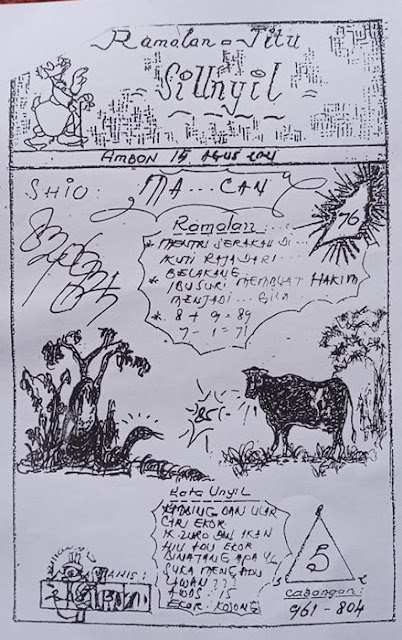 Ramalan Jitu
Si Unyil
AMBON 15 AGUS 2021
SHIO: MA...CAN
76
Ramalan
* MENTRI SERAKAH DI...
IKUTI RAJA DARI...
BELAKANG
* IBUSURI MEMBUAT HAKIM
MENJADI... GILA
* 8 + 9 = 89
7 - 1 = 71
Kata Unyil
KAMBING DAN ULAR
CARI EKOR
IK. DURO DAN IKAN
HIU ADU EKOR
BINATANG APA YG
SUKA MENGADU
LAWAN ???
AWAS : 15
EKOR : KOSONG
MANIS :
5
Cabangan:
961 - 804